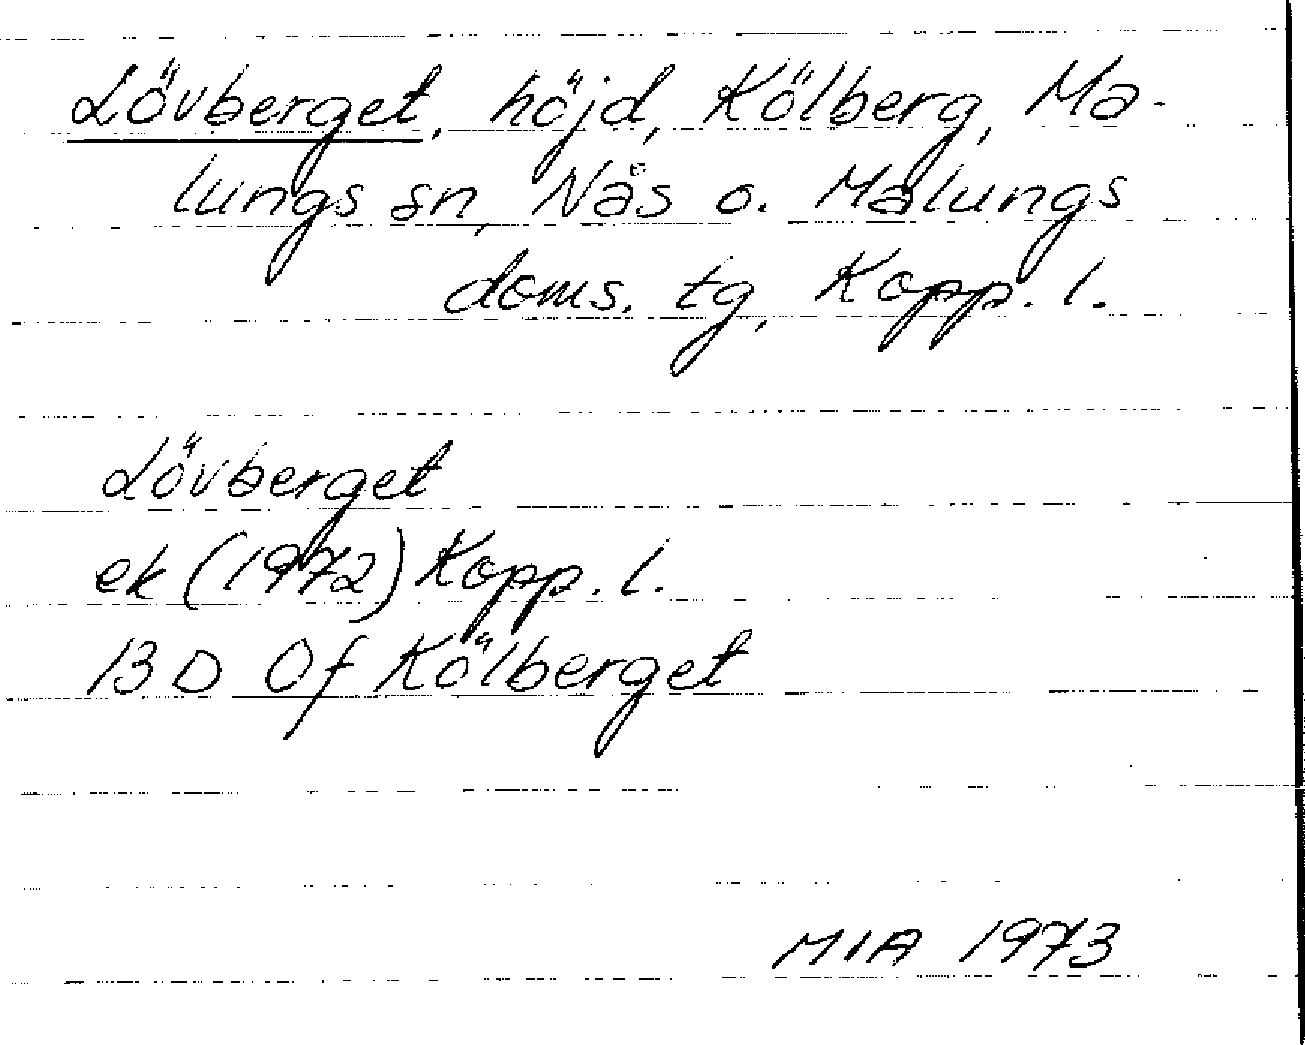 Lövberget, höjd, Kölberg, Ma-
lungs sn, Nås o. Malungs
doms. tg, Kopp. l.
Lövberget
ek (1972) Kopp. l.
13 D 0f Kölberget
MIA 1973